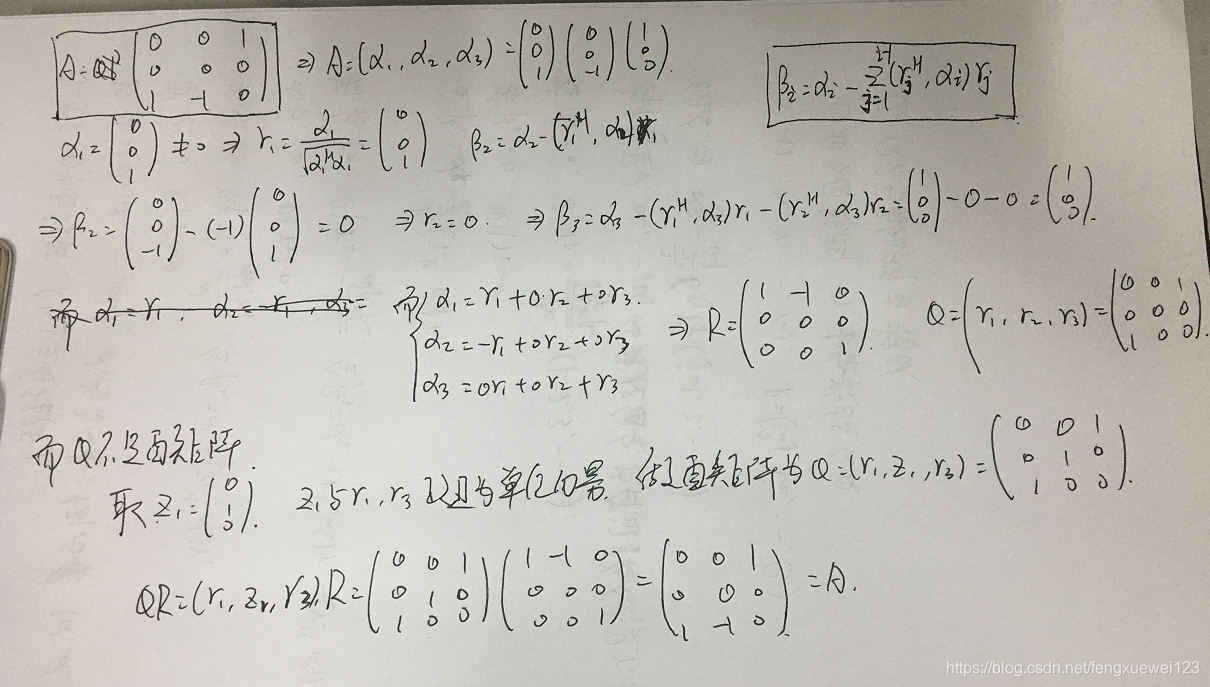 A = \begin{pmatrix} 0 & 0 & 1 \\ 0 & 0 & 0 \\ 1 & -1 & 0 \end{pmatrix} ⇒ A = (α₁, α₂, α₃) = \begin{pmatrix} 0 \\ 0 \\ 1 \end{pmatrix} \begin{pmatrix} 0 \\ 0 \\ -1 \end{pmatrix} \begin{pmatrix} 1 \\ 0 \\ 0 \end{pmatrix}. β_i = α_i - \sum_{j=1}^{i-1} (r_j^H, α_i) r_j
α₁ = \begin{pmatrix} 0 \\ 0 \\ 1 \end{pmatrix} ≠ 0 ⇒ r₁ = \frac{α₁}{\sqrt{α₁^H α₁}} = \begin{pmatrix} 0 \\ 0 \\ 1 \end{pmatrix} β₂ = α₂ - (r₁^H, α₂) r₁
⇒ β₂ = \begin{pmatrix} 0 \\ 0 \\ -1 \end{pmatrix} - (-1) \begin{pmatrix} 0 \\ 0 \\ 1 \end{pmatrix} = 0 ⇒ r₂ = 0. ⇒ β₃ = α₃ - (r₁^H, α₃) r₁ - (r₂^H, α₃) r₂ = \begin{pmatrix} 1 \\ 0 \\ 0 \end{pmatrix} - 0 - 0 = \begin{pmatrix} 1 \\ 0 \\ 0 \end{pmatrix}.
而 α₁ = r₁, α₂ = -r₁, α₃ = 而 { α₁ = r₁ + 0·r₂ + 0r₃.
α₂ = -r₁ + 0r₂ + 0r₃ ⇒ R = \begin{pmatrix} 1 & -1 & 0 \\ 0 & 0 & 0 \\ 0 & 0 & 1 \end{pmatrix}. Q = (r₁, r₂, r₃) = \begin{pmatrix} 0 & 0 & 1 \\ 0 & 0 & 0 \\ 1 & 0 & 0 \end{pmatrix}.
α₃ = 0r₁ + 0r₂ + r₃
而 Q 不是酉矩阵.
取 z₁ = \begin{pmatrix} 0 \\ 1 \\ 0 \end{pmatrix}. z₁与r₁, r₃ 且为单位向量. 酉矩阵为 Q = (r₁, z₁, r₃) = \begin{pmatrix} 0 & 0 & 1 \\ 0 & 1 & 0 \\ 1 & 0 & 0 \end{pmatrix}.
QR = (r₁, z₁, r₃) R = \begin{pmatrix} 0 & 0 & 1 \\ 0 & 1 & 0 \\ 1 & 0 & 0 \end{pmatrix} \begin{pmatrix} 1 & -1 & 0 \\ 0 & 0 & 0 \\ 0 & 0 & 1 \end{pmatrix} = \begin{pmatrix} 0 & 0 & 1 \\ 0 & 0 & 0 \\ 1 & -1 & 0 \end{pmatrix} = A.
https://blog.csdn.net/fengxuewei123